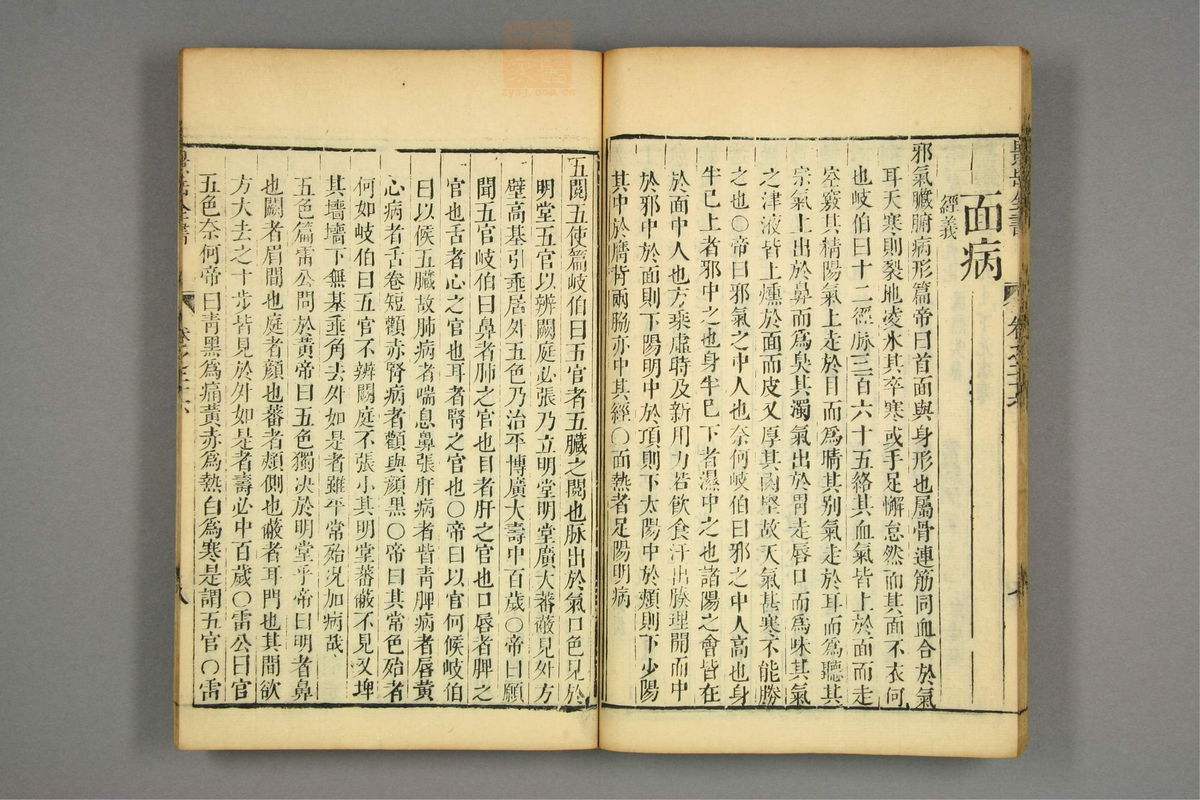 面病
經義
邪氣臟腑病形篇帝曰首面與身形也屬骨連筋同血合於氣
耳天寒則裂地凌氷其卒寒或手足懈怠然而其面不衣何
也岐伯曰十二經脉三百六十五絡其血氣皆上於面而走
空竅其精陽氣上走於目而爲睛其别氣走於耳而爲聽其
宗氣上出於鼻而爲臭其濁氣出於胃走唇口而爲味其氣
之津液皆上燻於面而皮又厚其肉堅故天氣甚寒不能勝
之也〇帝曰邪氣之中人也奈何岐伯曰邪之中人高也身
半已上者邪中之也身半已下者濕中之也諸陽之會皆在
於面中人也方乘虚時及新用力若飲食汗出腠理開而中
於邪中於面則下陽明中於項則下太陽中於頰則下少陽
其中於膺背兩脇亦中其經〇面熱者足陽明病
五閱五使篇岐伯曰五官者五臟之閱也脉出於氣口色見於
明堂五官以辨闕庭必張乃立明堂明堂廣大蕃蔽見外方
壁高基引垂居外五色乃治平博廣大壽中百歲〇帝曰願
聞五官岐伯曰鼻者肺之官也目者肝之官也口唇者脾之
官也舌者心之官也耳者腎之官也〇帝曰以官何候岐伯
曰以候五臟故肺病者喘息鼻張肝病者眥青脾病者唇黄
心病者舌卷短顴赤腎病者顴與顔黑〇帝曰其常色殆者
何如岐伯曰五官不辨闕庭不張小其明堂蕃蔽不見又埤
其墻墻下無基垂角去外如是者雖平常殆况加病哉
五色篇雷公問於黄帝曰五色獨决於明堂乎帝曰明者鼻
也闕者眉間也庭者顔也蕃者頰側也蔽者耳門也其間欲
方大去之十步皆見於外如是者壽必中百歲〇雷公曰官
五色奈何帝曰青黑爲痛黄赤爲熱白爲寒是謂五官〇雷